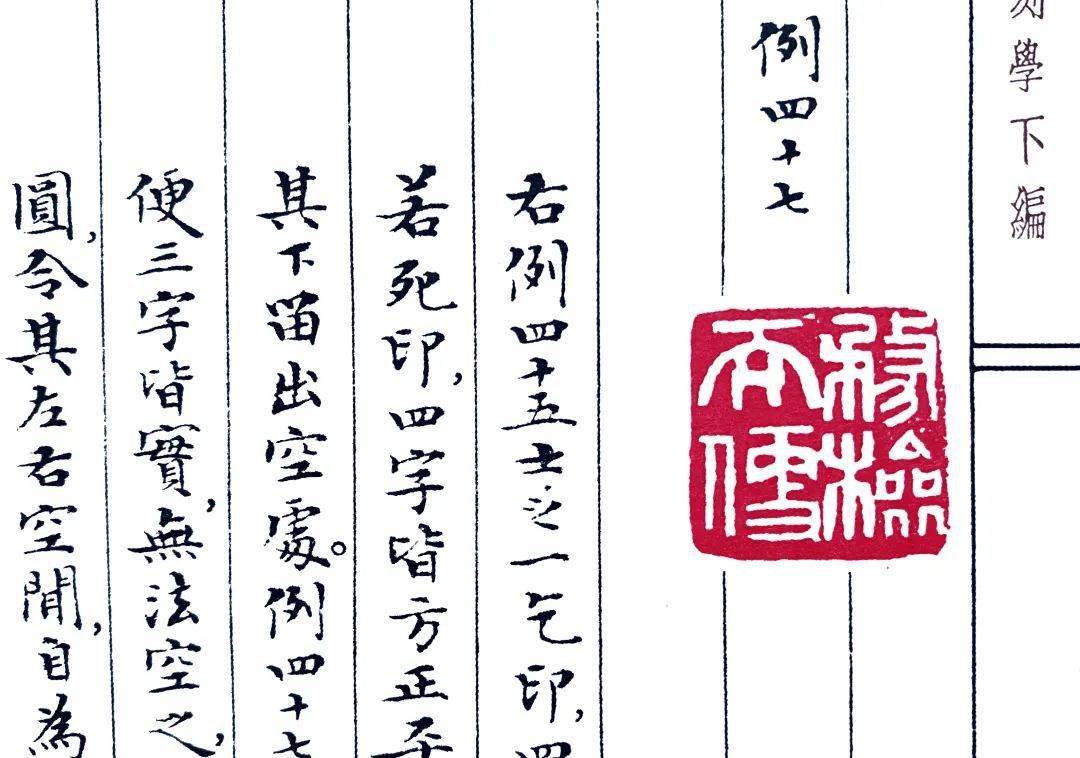 刻學下編
例四十七
右例四十五士之一乞印，四
若死印，四字皆方正平
其下留出空處。例四十七
便三字皆實，無法空之，
圓，令其左右空閒，自為